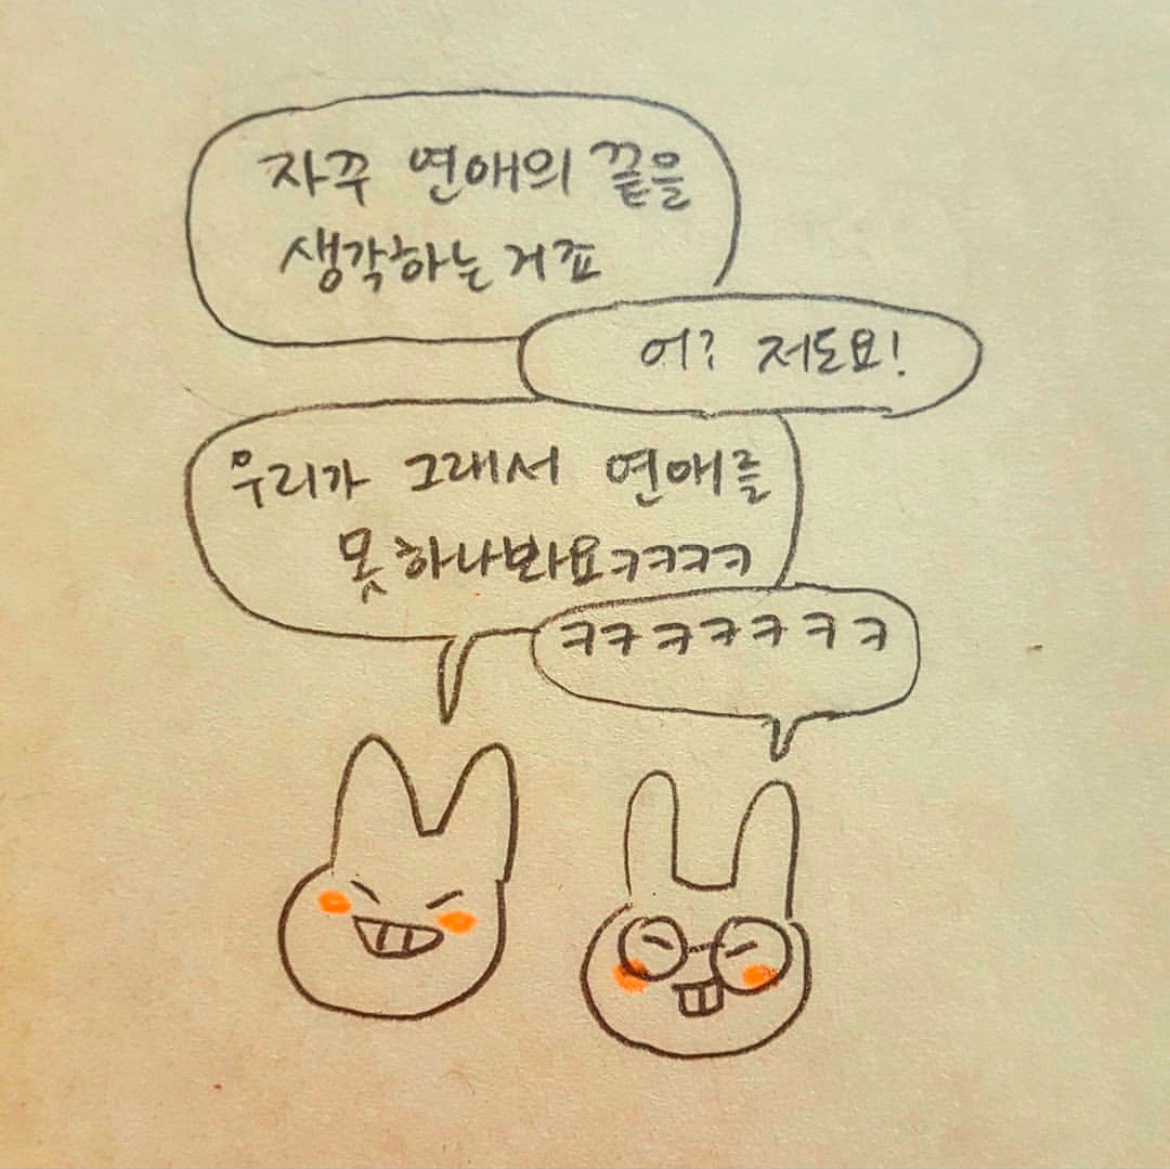 자꾸 연애의 끝을
생각하는 거죠
어? 저도요!
우리가 그래서 연애를
못하나봐요ㅋㅋㅋㅋ
ㅋㅋㅋㅋㅋㅋㅋ